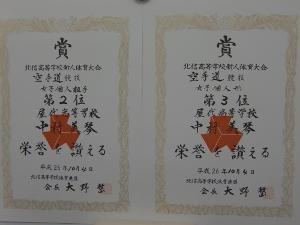 賞
北信高等学校新人体育大会
空手道競技
女子個人組手
第2位
屋代高等学校
中村 琴
栄誉を讃える
平成26年10月4日
北信高等学校体育連盟
会長 大野 整
賞
北信高等学校新人体育大会
空手道競技
女子個人形
第3位
屋代高等学校
中村 琴
栄誉を讃える
平成26年10月4日
北信高等学校体育連盟
会長 大野 整